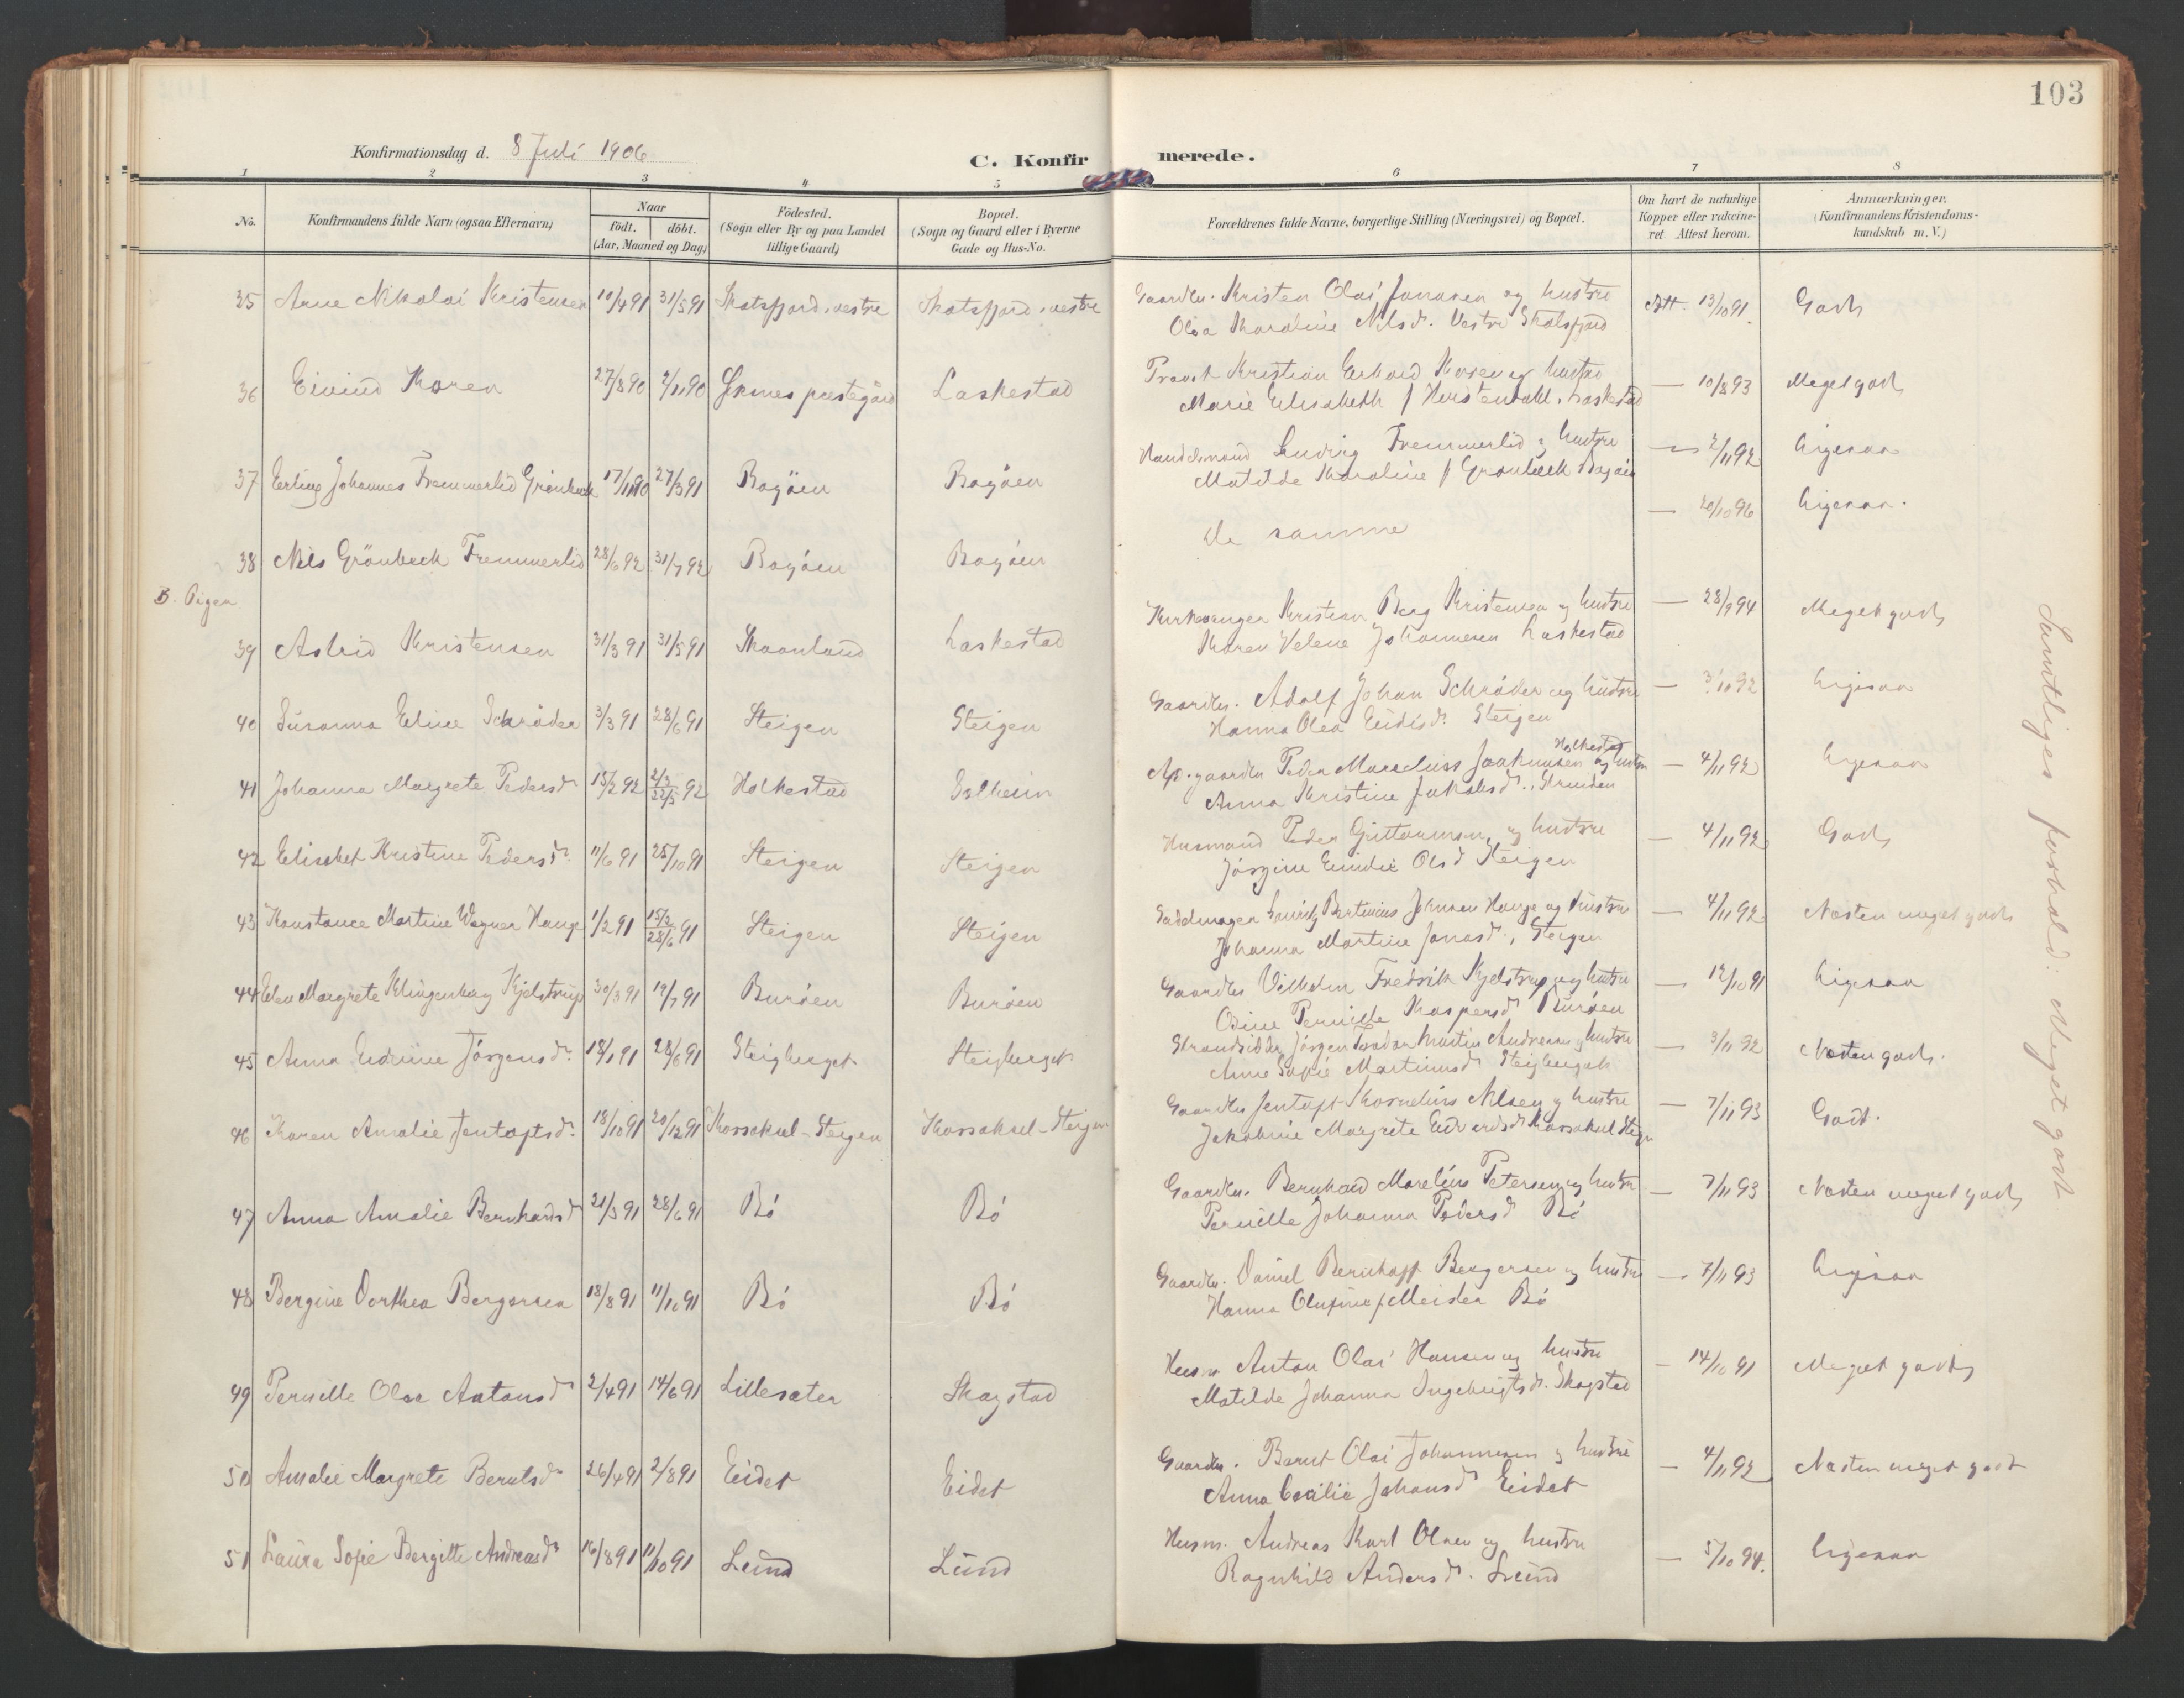 103
Konfirmationsdag d. 8 Juli 1906
C. Konfirmerede.
1 2 3 4 5 6 7 8
No.
Konfirmandens fulde Navn (ogsaa Efternavn)
Naar
født. døbt.
(Aar, Maaned og Dag.)
Fødested.
(Sogn eller By og paa Landet
tillige Gaard)
Bopæl.
(Sogn og Gaard eller i Byerne
Gade og Hus-No.
Forældrenes fulde Navne, borgerlige Stilling (Næringsvei) og Bopæl.
Om havt de naturlige
Kopper eller vakcine-
ret. Attest herom.
Anmærkninger.
(Konfirmandens Kristendoms-
kundskab m. V.)
35 Arne Nikolai Kristensen 10/4 91 31/5 91 Skotsfjord, vestre Skotsfjord, vestre
Gaardbr. Kristen Olai Jonasen og hustru
Olea Karoline Nilsd. Vestre Skotsfjord
Att. 13/10 91. Godt
36 Eivind Koren 27/8 90 2/11 90 præstegård Laskestad
Provst Kristian Koren og hustru
Marie Elisabeth f Laskestad
— 10/8 93 Meget godt
37 Erling Johannes Fremmerlid Grønbeck 17/11 90 27/3 91 Bogøen Bogøen
Handelsmand Ludvig Fremmerlid og hustru
Matilde Karoline f Grønbeck Bogøen
— 2/11 92 Ligesaa
38 Nils Grønbeck Fremmerlid 28/6 92 31/7 92 Bogøen Bogøen
de samme
— 20/10 96 Ligesaa.
B. Piger
39 Astrid Kristensen 31/3 91 31/5 91 Skaanland Laskestad
Kirkesanger Kristian Berg Kristensen og hustru
Karen Velene Johannesen Laskestad
— 28/9 94 Meget godt
40 Susanna Eline Schrøder 3/3 91 28/6 91 Steigen Steigen
Gaardbr. Adolf Johan Schrøder og hustru
Hanna Olea Steigen
— 3/10 92 Ligesaa
41 Johanna Margrete Pedersd. 15/2 92 2/3 22/5 92 Holkestad Solheim
gaardbr Peder Marselius Joakimsen Holkestad og hustru
Anna Kristine Jakobsd.
— 4/11 92 Ligesaa
42 Elisebet Kristine Pedersd. 11/6 91 25/10 91 Steigen Steigen
Husmand Peder og hustru
Jørgine Olsd Steigen
— 4/11 92 Godt
43 Konstance Martine Wagner Hauge 1/2 91 15/2 28/6 91 Steigen Steigen
Sadelmager Bertinius Johnsen Hauge og hustru
Johanna Martine Jonasd., Steigen
— 4/11 92 Næsten meget godt
44 Elen Margrete Klingenberg Kjelstrup 30/3 91 19/7 91 Burøen Burøen
Gaardbr Vilhelm Fredrik Kjelstrup og hustru
Pernille Kaspersd Burøen
— 12/10 91 Ligesaa
45 Anna Jørgensd. 18/1 91 28/6 91 Steigberget Steigberget
Strandsidder Jørgen Martin Andreasen og hustru
Anne Sofie Martinusd Steigberget
— 3/11 92 Næsten godt.
46 Karen Amalie Jentoftsd. 18/10 91 20/12 91 Korsaksel - Steigen Korsaksel - Steigen
Gaardbr Jentoft Kornelius Nilsen og hustru
Jakobine Margrete Edvardsd Steigen
— 7/11 93 Godt.
47 Anna Amalie Bernhardsd. 21/3 91 28/6 91 Bø Bø
Gaardbr. Bernhard Marelius Petersen og hustru
Pernille Johanna Pedersd Bø
— 7/11 93 Næsten meget godt
48 Bergine Dorthea Bergersen 18/8 91 11/10 91 Bø Bø
Gaardbr. Daniel Bernhoff Bergersen og hustru
Hanna Olufine f Bø
— 7/11 93 Ligesaa
49 Pernille Olea Antonsd 2/4 91 14/6 91 Lillesæter Skagstad
Husm Anton Olai Hansen og hustru
Matilde Johanna Ingebrigtsd. Skagstad
— 14/10 91 Meget godt
50 Amalie Margrete Berntsd 26/4 91 2/8 91 Eidet Eidet
Gaardbr. Bernt Olai Johannesen og hustru
Anna Cecilie Johansd Eidet
— 4/11 92 Næsten meget godt
51 Laura Sofie Bergitte Andreasd. 16/8 91 11/10 91 Leines Leines
Husm. Andreas Kurt Olsen og hustru
Ragnhild Andersd.
— 5/10 94. Ligesaa
Samtliges forhold: Meget godt